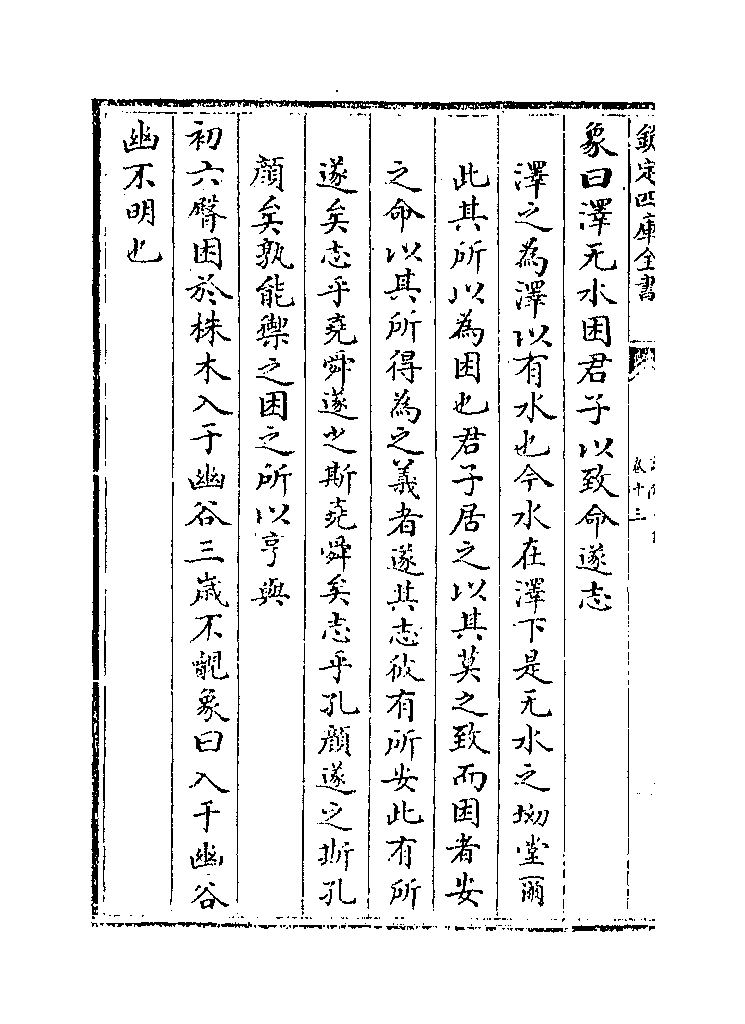 欽定四庫全書
卷十三
象曰澤无水困君子以致命遂志
澤之為澤以有水也今水在澤下是无水之坳堂爾
此其所以為困也君子居之以其莫之致而困者安
之命以其所得為之義者遂其志彼有所安此有所
遂矣志乎堯舜遂之斯堯舜矣志乎孔顔遂之斯孔
顔矣孰能禦之困之所以亨與
初六臀困於株木入于幽谷三歲不覿象曰入于幽谷
幽不明也